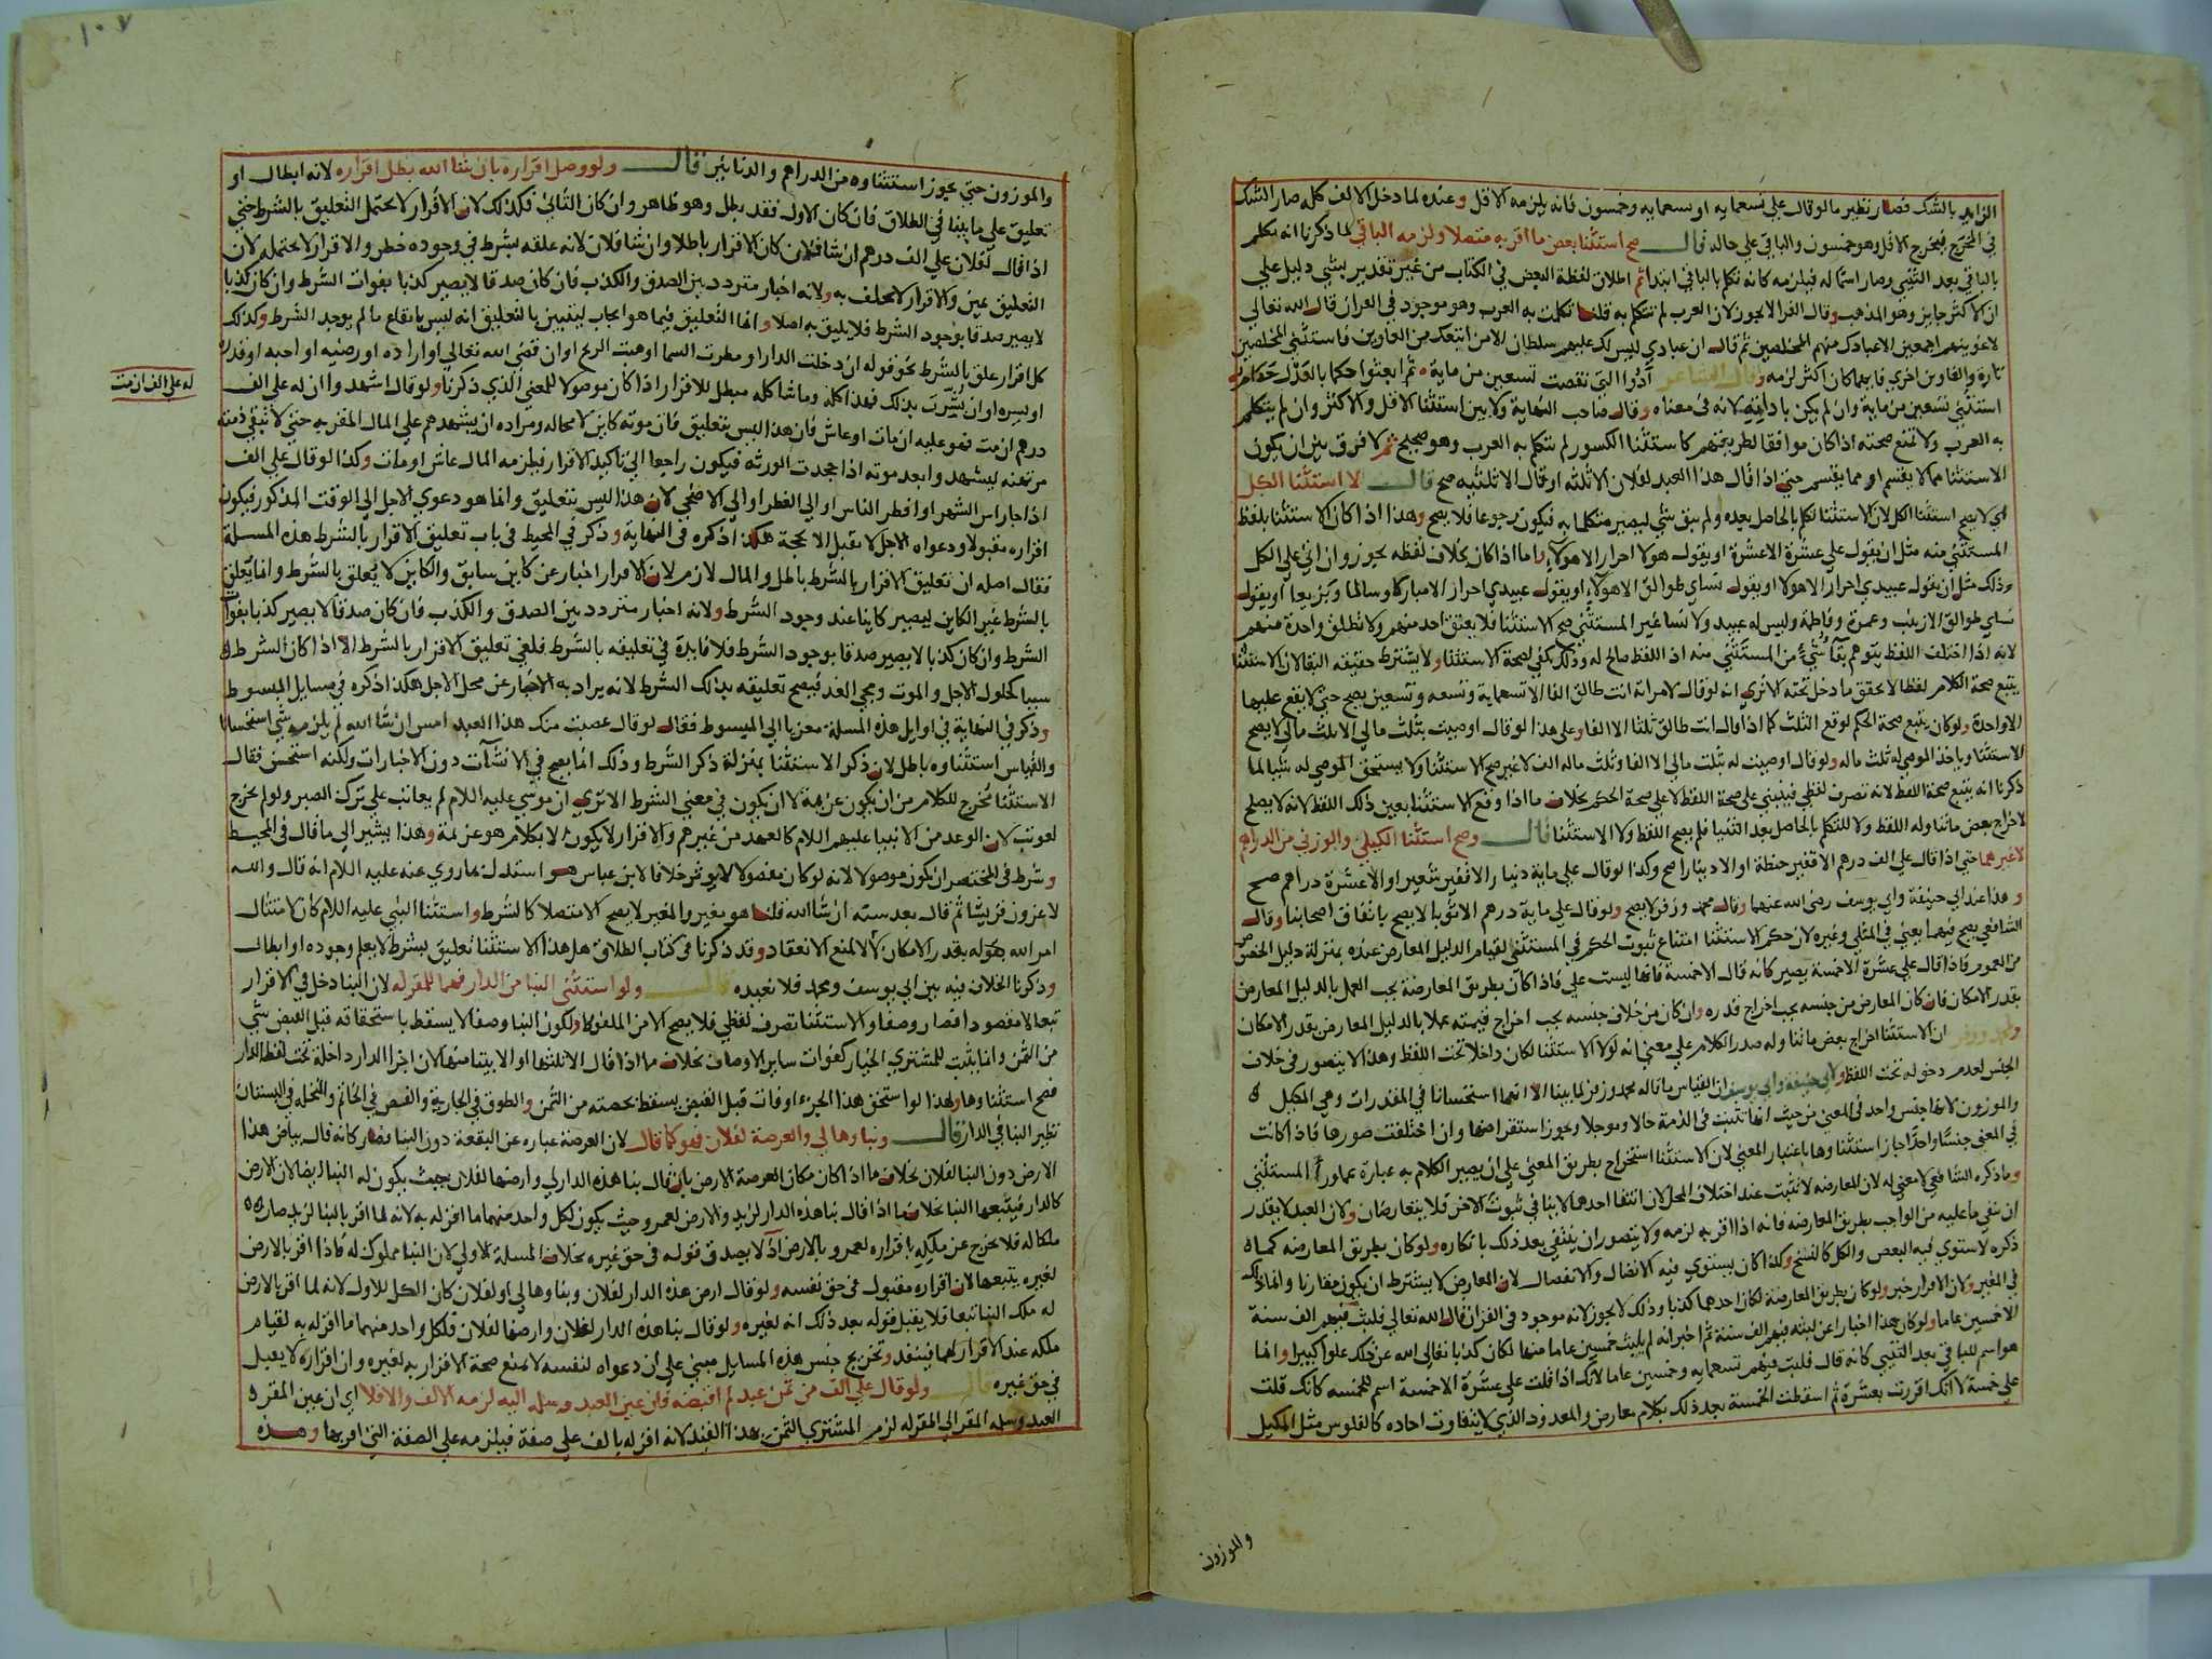 الزايد بالشك فصار نظير ما لو قال علي تسعمايه او سعمايه وخمسون فانه يلزمه الاقل وعنده لما دخل الالف كله صار الشك
في المخرج فيخرج الاقل وهو خمسون والباقي علي حاله قال صح استثنا بعض ما اقر به متصلا ولزمه الباقي لما ذكرنا انه تكلم
بالباقي بعد الثني وصار اسما له فيلزمه كانه تكلم بالباقي ابتدا ثم اطلاق لفظة البعض في الكتاب من غير تقدير بشي دليل علي
ان الاكثر جايز وهو المذهب وقال الفرا لا يجوز لان العرب لم تتكلم به قلنا تكلمت به العرب وهو موجود في القران قال الله تعالي
لاغوينهم اجمعين الا عبادك منهم المخلصين ثم قال ان عبادي ليس لك عليهم سلطان الا من اتبعك من الغاوين فاستثني المخلصين
تارة والغاوين اخري فايهما كان اكثر لزمه وقال الشاعر أدوا التي نقصت تسعين من ماية ثم ابعثوا حكما بالعدل حكام
استثني تسعين من ماية وان لم يكن باداته لانه في معناه وقال صاحب النهاية ولا بين استثنا الاقل والاكثر وان لم يتكلم
به العرب ولا تمنع صحته اذا كان موافقا لطريقتهم كاستثنا الكسور لم تتكلم به العرب وهو صحيح ثم لا فرق بين ان يكون
الاستثنا مما لا يقسم او مما يقسم حتي اذا قال هذا العبد لفلان الا ثلثه او قال الا ثلثيه صح قال لا استثنا الكل
اي لا يصح استثنا الكل لان الاستثنا تكلم بالحاصل بعده ولم يبق شي ليصير متكلما به فيكون رجوعا فلا يصح وهذا اذا كان الاستثنا بلفظ
المستثني منه مثل ان يقول علي عشرة الا عشرة او يقول هولا احرار الا هولا واما اذا كان بخلاف لفظه يجوز وان اتي علي الكل
وذلك مثل ان يقول عبيدي احرار الا هولا او يقول نساي طوالق الا هولا او يقول عبيدي احرار الا مباركا وسالما وبزيعا او يقول
نساي طوالق الا زينب وعمرة وفاطمة وليس له عبيد ولا نسا غير المستثني صح الاستثنا فلا يعتق احد منهم ولا تطلق واحدة منهم
لانه اذا اختلف اللفظ يتوهم بقا شي من المستثني منه اذ اللفظ صالح له وذلك يكفي لصحة الاستثنا ولا يشترط حقيقه البقا لان الاستثنا
يتبع صحة الكلام لفظا لا تحقق ما دخل تحته الا تري انه لو قال لامراته انت طالق الفا الا تسعماية وتسعه وتسعين يصح حتي لا يقع عليها
الا واحدة ولو كان يتبع صحة الحكم لوقع الثلث كما اذا قال انت طالق ثلثا الا الفا وعلي هذا لو قال اوصيت بثلث مالي الا ثلث مالي لا يصح
الاستثنا وياخذ الموصي له ثلث ماله ولو قال اوصيت له بثلث مالي الا الفا وثلث ماله الف لا غير صح الاستثنا ولا يستحق الموصي له شيا لما
ذكرنا انه يتبع صحة اللفظ لانه تصرف لفظي فيبتني علي صحة اللفظ لا علي صحة الحكم بخلاف ما اذا وقع الاستثنا بعين ذلك اللفظ لانه لا يصلح
لاخراج بعض ما تناوله اللفظ ولا للتكلم بالحاصل بعد الثنيا فلم يصح اللفظ ولا الاستثنا قال وصح استثنا الكيلي والوزني من الدراهم
لا غيرهما حتي اذا قال علي الف درهم الا قفيز حنطة او الا دينارا صح وكذا لو قال علي ماية دينار الا قفيز شعير او الا عشرة دراهم صح
وهذا عند ابي حنيفة وابي يوسف رضي الله عنهما وقال محمد وزفر لا يصح ولو قال علي ماية درهم الا ثوبا لا يصح باتفاق اصحابنا وقال
الشافعي يصح فيهما يعني في المثلي وغيره لان حكم الاستثنا امتناع ثبوت الحكم في المستثني لقيام الدليل المعارض عنده بمنزلة دليل الخصوص
من العموم فاذا قال علي عشرة الا خمسة يصير كانه قال الا خمسة فانها ليست علي فاذا كان بطريق المعارضة يجب العمل بالدليل المعارض
بقدر الامكان فان كان المعارض من جنسه يجب اخراج قدره وان كان من خلاف جنسه يجب اخراج قيمته عملا بالدليل المعارض بقدر الامكان
ولمحمد وزفر ان الاستثنا اخراج بعض ما تناوله صدر الكلام علي معني انه لولا الاستثنا لكان داخلا تحت اللفظ وهذا لا يتصور في خلاف
الجنس لعدم دخوله تحت اللفظ ولابي حنيفة وابي يوسف ان القياس ما قاله محمد وزفر لما بينا الا انهما استحسنا في المقدرات وهي المكيل
والموزون لانها جنس واحد في المعني من حيث انها تثبت في الذمة حالا وموجلا ويجوز استقراضها وان اختلفت صورها فاذا كانت
في المعني جنسا واحدا جاز استثناوها باعتبار المعني لان الاستثنا استخراج بطريق المعني علي ان يصير الكلام به عبارة عما ورا المستثني
وما ذكره الشافعي لا معني له لان المعارضه لا تثبت عند اختلاف المحل لان انتفا احدهما لا ينافي ثبوت الاخر فلا يتعارضان ولان العبد لا يقدر
ان ينفي ما عليه من الواجب بطريق المعارضه فانه اذا اقر به لزمه ولا يتصور ان ينتفي بعد ذلك بانكاره ولو كان بطريق المعارضه كما
ذكره لاستوي فيه البعض والكل كالنسخ وكذا كان يستوي فيه الاتصال والانفصال لان المعارض لا يشترط ان يكون مقارنا وانما ذلك
في المغير ولان الاقرار خبر ولو كان بطريق المعارضة لكان احدهما كذبا وذلك لا يجوز لانه موجود في القران قال الله تعالي فلبث فيهم الف سنة
الا خمسين عاما ولو كان هذا اخبارا عن لبثه فيهم الف سنة ثم اخبر انه لم يلبث خمسين عاما منها لكان كذبا تعالي الله عن ذلك علوا كبيرا وانما
هو اسم للباقي بعد الثني كانه قال فلبث فيهم تسعمايه وخمسين عاما لانك اذا قلت علي عشرة الا خمسة اسم للخمسه كانك قلت
علي خمسة لا انك اقررت بعشرة ثم اسقطت الخمسة بعد ذلك بكلام معارض والمعدود الذي لا يتفاوت احاده كالفلوس مثل المكيل
والموزون
١٠٧
والموزون حتي يجوز استثناوه من الدراهم والدنانير قال ولو وصل اقراره بان شا الله بطل اقراره لانه ابطال او
تعليق علي ما بينا في الطلاق فان كان الاول فقد بطل وهو ظاهر وان كان الثاني فكذلك لان الاقرار لا يحتمل التعليق بالشرط حتي
اذا قال لفلان علي الف درهم ان شا فلان كان الاقرار باطلا وان شا فلان لانه علقه بشرط في وجوده خطر والاقرار لا يحتمله لان
التعليق يمين والاقرار لا يحلف به ولانه اخبار متردد بين الصدق والكذب فان كان صدقا لا يصير كذبا بفوات الشرط وان كان كذبا
لا يصير صدقا بوجود الشرط فلا يليق به اصلا وانما التعليق فيما هو ايجاب ليتبين بالتعليق انه ليس بايقاع ما لم يوجد الشرط وكذلك
كل اقرار علق بالشرط نحو قوله ان دخلت الدار او مطرت السما او هبت الريح او ان قضي الله تعالي او اراده او رضيه او احبه او قدره
او يسره او ان بشرت بذلك فهذا كله وما شاكله مبطل للاقرار اذا كان موصولا للمعني الذي ذكرنا ولو قال اشهدوا ان له علي الف
له علي الف ان مت
درهم ان مت فهو عليه ان مات او عاش فان هذا ليس بتعليق فان موته كاين لا محاله ومراده ان يشهدهم علي المال المقر به حتي لا تبقي ذمته
مرتهنه ليشهدوا بعد موته اذا جحدت الورثه فيكون راجعا الي تاكيد الاقرار فيلزمه المال عاش او مات وكذا لو قال علي الف
اذا جا راس الشهر او افطر الناس او الي الفطر او الي الاضحي لان هذا ليس بتعليق وانما هو دعوي الاجل الي الوقت المذكور فيكون
اقراره مقبولا ودعواه الاجل لا تقبل الا بحجة هكذا ذكره في النهاية وذكر في المحيط في باب تعليق الاقرار بالشرط هذه المسلة
فقال اصله ان تعليق الاقرار بالشرط باطل والمال لازم لان الاقرار اخبار عن كاين سابق والكاين لا يعلق بالشرط وانما يعلق
بالشرط غير الكاين ليصير كاينا عند وجود الشرط ولانه اخبار متردد بين الصدق والكذب فان كان صدقا لا يصير كذبا بفوات
الشرط وان كان كذبا لا يصير صدقا بوجود الشرط فلا فايدة في تعليقه بالشرط فلغي تعليق الاقرار بالشرط الا اذا كان الشرط
سببا لحلول الاجل والموت ومجي الغد فيصح تعليقه بذلك الشرط لانه يراد به الاخبار عن محل الاجل هكذا ذكره في مسايل المبسوط
وذكر في النهاية في اوايل هذه المسلة معزيا الي المبسوط فقال لو قال غصبت منك هذا العبد امس ان شا الله لم يلزمه شي استحسانا
والقياس استثناوه باطل لان ذكر الاستثنا بمنزلة ذكر الشرط وذلك انما يصح في الانشآت دون الاخبارات ولكنه استحسن فقال
الاستثنا مخرج للكلام من ان يكون عزيمة لا ان يكون في معني الشرط الا تري ان موسي عليه السلام لم يعاتب علي ترك الصبر ولو لم يخرج
لعوتب لان الوعد من الانبيا عليهم السلام كالعهد من غيرهم والاقرار لا يكون الا بكلام هو عزيمة وهذا يشير الي ما قال في المحيط
وشرط في المختصر ان يكون موصولا لانه لو كان مفصولا لا يوثر خلافا لابن عباس هو استدل بما روي عنه عليه السلام انه قال والله
لاغزون قريشا ثم قال بعد سنه ان شا الله قلنا هو مغير والمغير لا يصح الا متصلا كالشرط واستثنا النبي عليه السلام كان لامتثال
امر الله بقوله بقدر الامكان لا لمنع الانعقاد وقد ذكرنا في كتاب الطلاق هل هذا الاستثنا تعليق بشرط لا يعلم وجوده او ابطال
وذكرنا الخلاف فيه بين ابي يوسف ومحمد فلا نعيده قال ولو استثني البنا من الدار فهما للمقر له لان البنا دخل في الاقرار
تبعا لا مقصودا فصار وصفا والاستثنا تصرف لفظي فلا يصح الا من الملفوظ ولكون البنا وصفا لا يسقط باستحقاقه قبل القبض شي
من الثمن وانما يثبت للمشتري الخيار كفوات ساير الاوصاف بخلاف ما اذا قال الا ثلثها او الا بيتا منها لان اجزا الدار داخلة تحت لفظ الدار
فصح استثناوها ولهذا لو استحق هذا الجزء او فات قبل القبض يسقط بحصته من الثمن والطوق في الجارية والفص في الخاتم والنخله في البستان
نظير البنا في الدار قال وبناوها لي والعرصة لفلان فهو كما قال لان العرصة عباره عن البقعة دون البنا فصار كانه قال بياض هذا
الارض دون البنا لفلان بخلاف ما اذا كان مكان العرصة الارض بان قال بنا هذه الدار لي وارضها لفلان بحيث يكون له البنا ايضا لان الارض
كالدار فيتبعها البنا بخلاف ما اذا قال بنا هذه الدار لزيد والارض لعمرو حيث يكون لكل واحد منهما ما اقر له به لانه لما اقر بالبنا لزيد صار
ملكا له فلا يخرج عن ملكه باقراره لعمرو بالارض اذ لا يصدق قوله في حق غيره بخلاف المسلة الاولي لان البنا مملوك له فاذا اقر بالارض
لغيره يتبعها لان اقراره مقبول في حق نفسه ولو قال ارض هذه الدار لفلان وبناوها لي او لفلان كان الكل للاول لانه لما اقر بالارض
له ملك البنا تبعا فلا يقبل قوله بعد ذلك انه لغيره ولو قال بنا هذه الدار لفلان وارضها لفلان فلكل واحد منهما ما اقر له به لقيام
ملكه عند الاقرار لهما فينفذ وتخريج جنس هذه المسايل مبني علي ان دعواه لنفسه لا تمنع صحة الاقرار به لغيره وان اقراره لا يقبل
في حق غيره قال ولو قال علي الف من ثمن عبد لم اقبضه فان عين العبد وسلمه اليه لزمه الالف والا فلا اي ان عين المقر
العبد وسلمه المقر الي المقر له لزم المشتري الثمن بهذا القيد لانه اقر له بالف علي صفة فيلزمه علي الصفة التي اقر بها وهذه